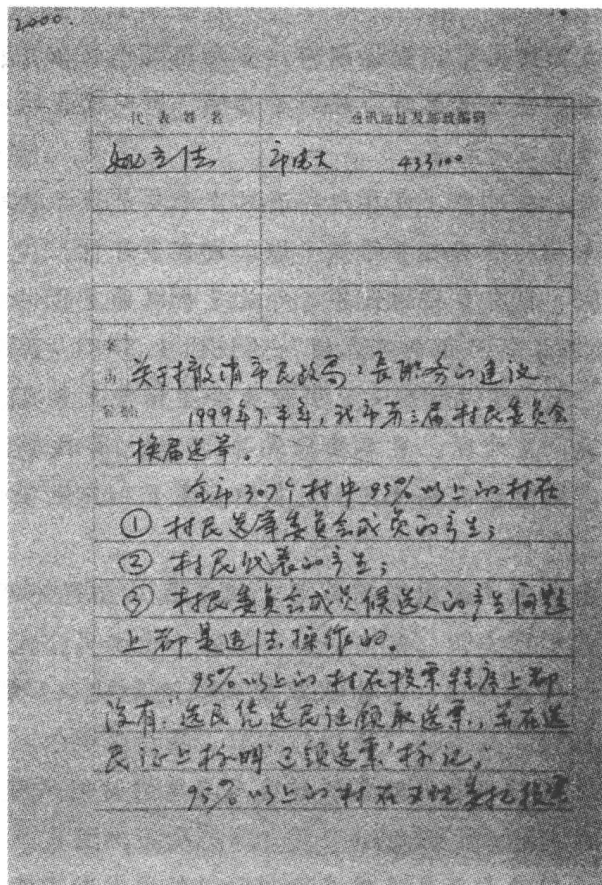 2000.
代表姓名 通讯地址及邮政编码
姚立法 市电大 433100
案
由
关于撤消市民政局局长职务的建议
1999年下半年,我市第三届村民委员会
换届选举。
全市307个村中95%以上的村在
① 村民选举委员会成员的产生;
② 村民代表的产生;
③ 村民委员会成员候选人的产生问题
上都是违法操作的。
95%以上的村在投票程序上都
没有“选民凭选民证领取选票,并在选
民证上标明‘已领选票’标记”
95%以上的村在 委托投票